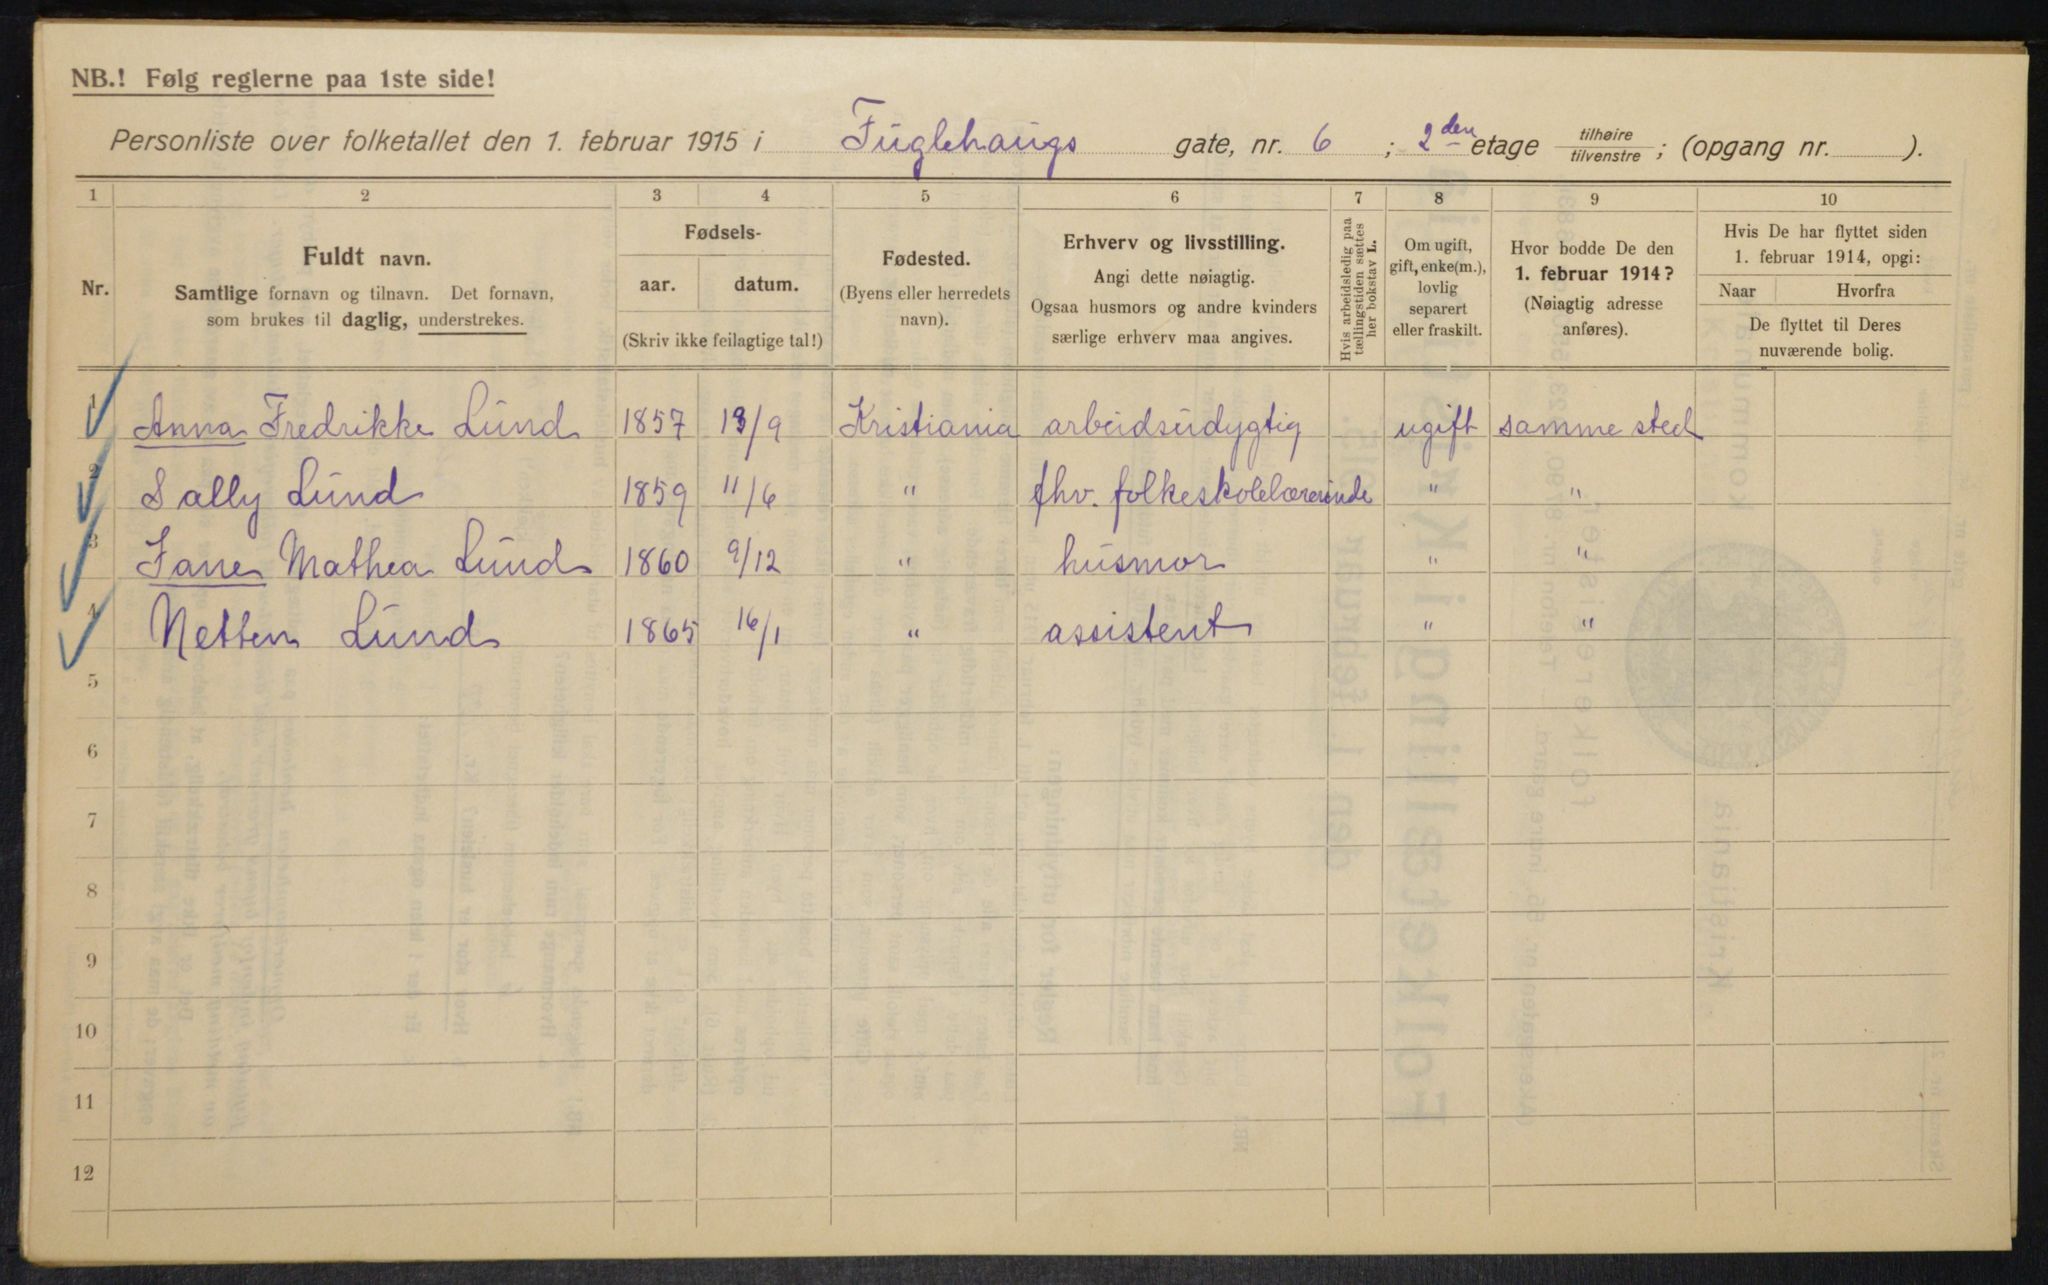 NB.! Følg reglerne paa 1ste side!
Personliste over folketallet den 1. februar 1915 i Fuglehaugs gate, nr. 6 ; 2den etage tilhøire tilvenstre ; (opgang nr. ).
1 2 3 4 5 6 7 8 9 10
Nr.
Fuldt navn.
Samtlige fornavn og tilnavn. Det fornavn,
som brukes til daglig, understrekes.
Fødsels-
aar. datum.
(Skriv ikke feilagtige tal!)
Fødested.
(Byens eller herredets
navn).
Erhverv og livsstilling.
Angi dette nøiagtig.
Ogsaa husmors og andre kvinders
særlige erhverv maa angives.
Hvis arbeidsledig paa
tællingstiden sættes
her bokstav L.
Om ugift,
gift, enke(m.),
lovlig
separert
eller fraskilt.
Hvor bodde De den
1. februar 1914?
(Nøiagtig adresse
anføres).
Hvis De har flyttet siden
1. februar 1914, opgi:
Naar Hvorfra
De flyttet til Deres
nuværende bolig.
1 Anna Fredrikke Lund 1857 13/9 Kristiania arbeidsudygtig ugift samme sted
2 Sally Lund 1859 11/6 " fhv. folkeskolelærerinde " "
3 Jane Mathea Lund 1860 9/12 " husmor " "
4 Netten Lund 1865 16/1 " assistent " "
5
6
7
8
9
10
11
12